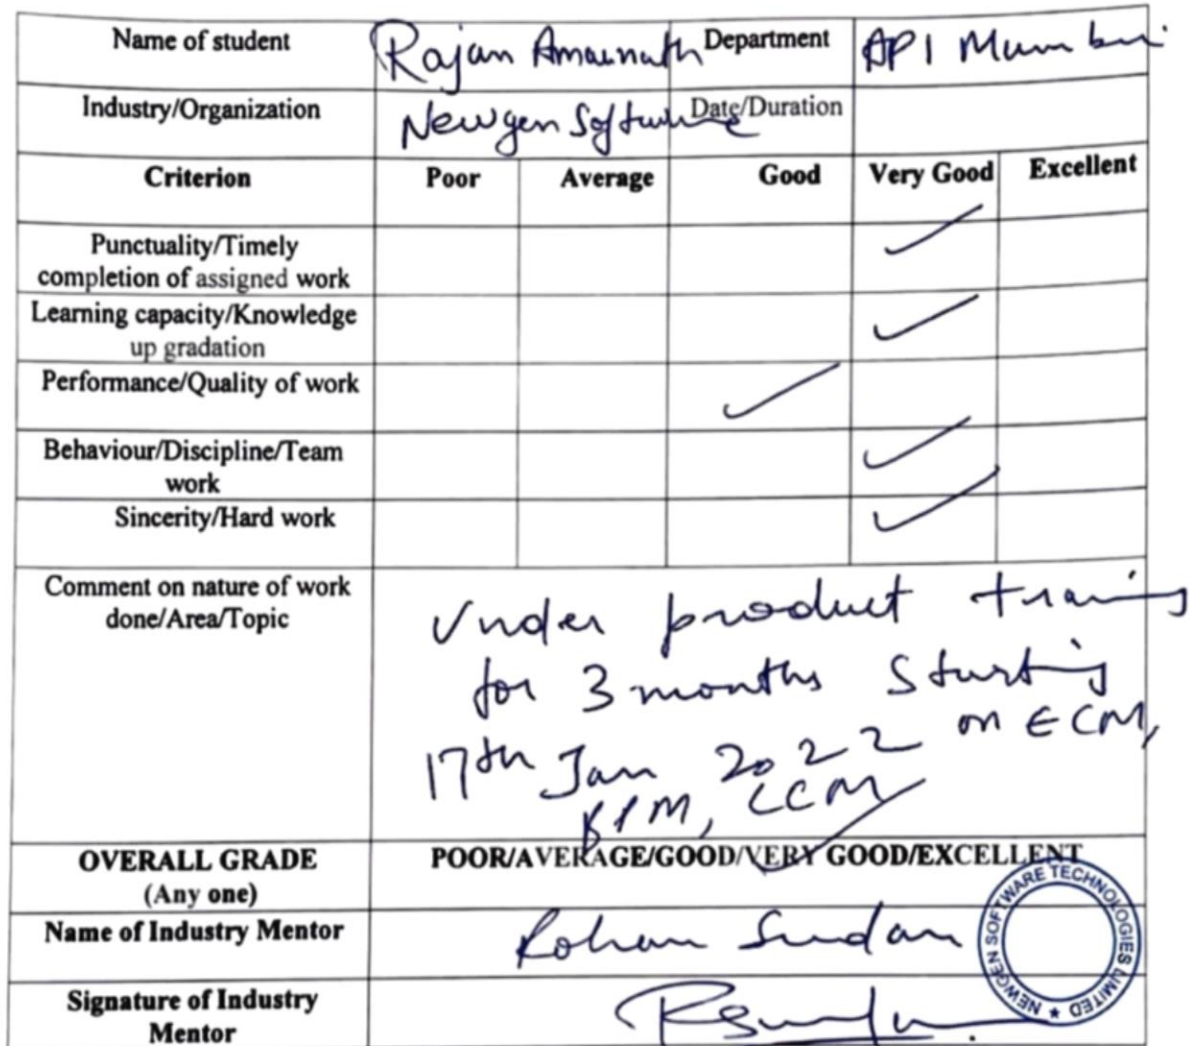 Name of student Rajan Amarnath Department API Mumbai
Industry/Organization Newgen Software Date/Duration
Criterion Poor Average Good Very Good Excellent
Punctuality/Timely
completion of assigned work
Learning capacity/Knowledge
up gradation
Performance/Quality of work
Behaviour/Discipline/Team
work
Sincerity/Hard work
Comment on nature of work
done/Area/Topic
Under product training
for 3 months Starting
17th Jan 2022 on ECM,
BPM, CCM
OVERALL GRADE POOR/AVERAGE/GOOD/VERY GOOD/EXCELLENT
(Any one)
Name of Industry Mentor Rohan Sudan
NEWGEN SOFTWARE TECHNOLOGIES LIMITED
Signature of Industry
Mentor